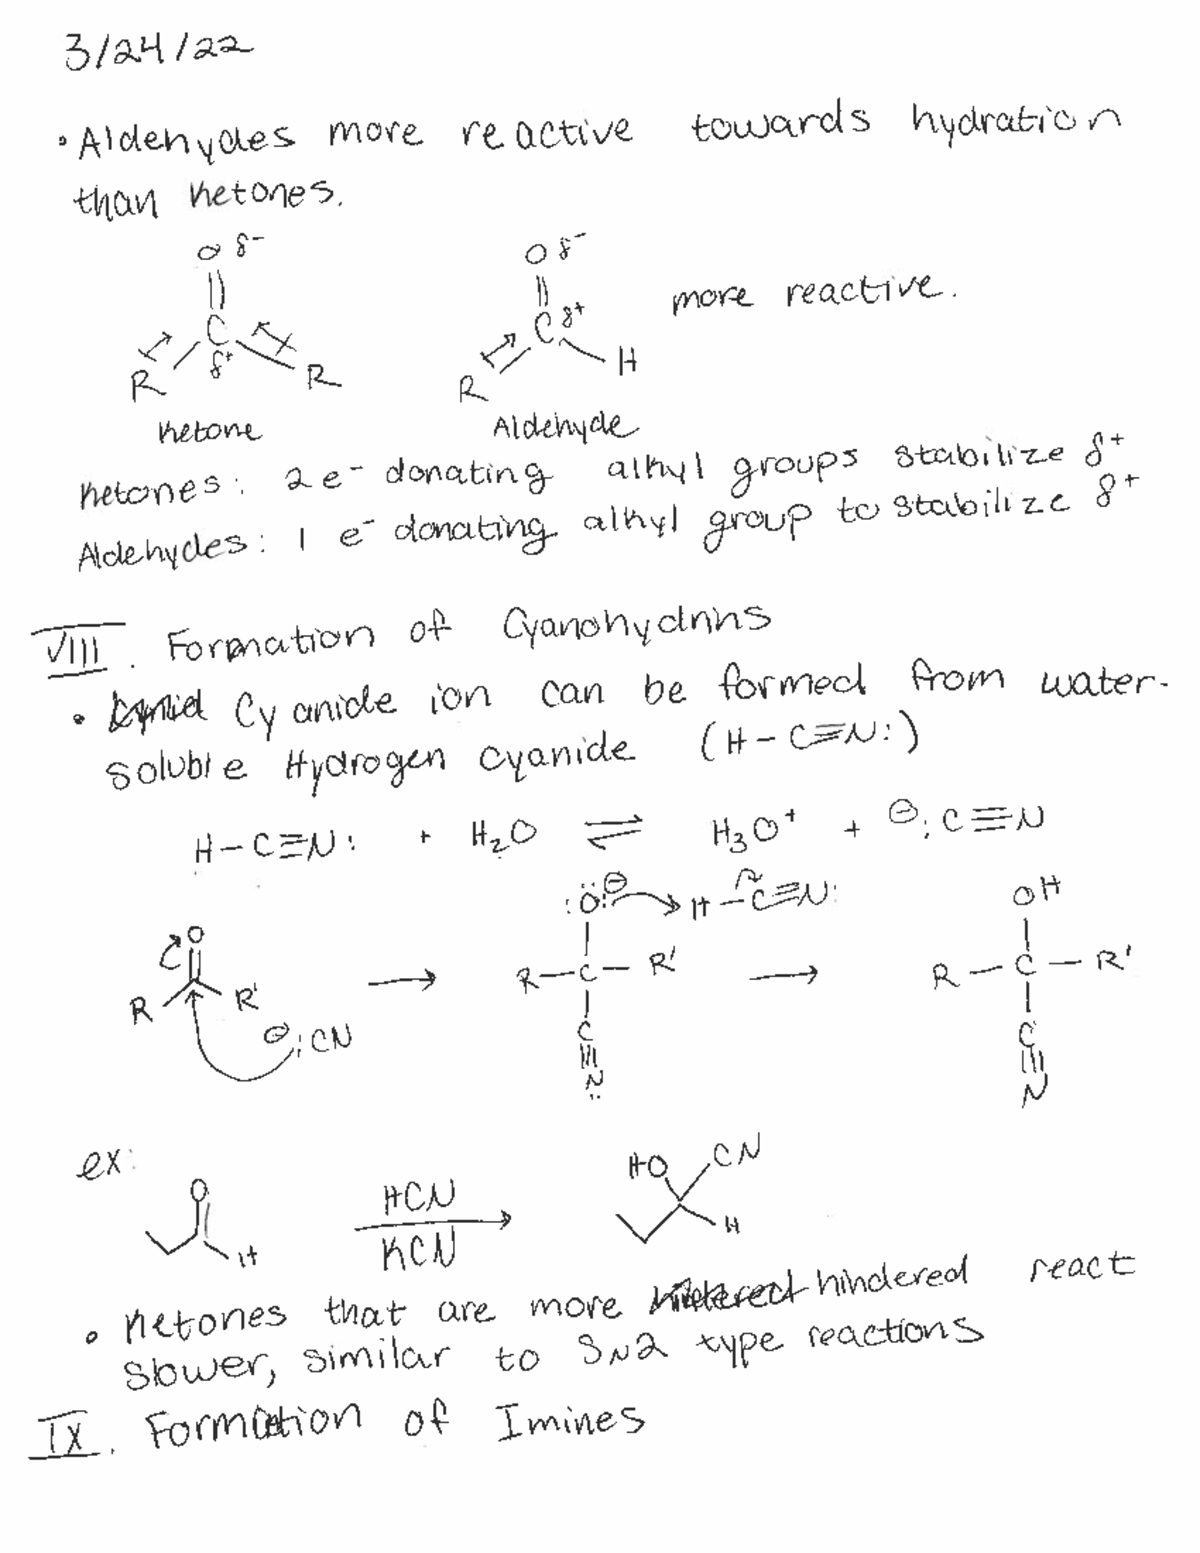 3/24/22
• Aldehydes more reactive towards hydration
than ketones.
O δ- O δ-
C δ+ C δ+ more reactive.
R R R H
Ketone Aldehyde
Ketones: 2 e- donating alkyl groups stabilize δ+
Aldehydes: 1 e- donating alkyl group to stabilize δ+
VIII. Formation of Cyanohydrins
• Cyanide ion can be formed from water-
soluble Hydrogen cyanide (H-C≡N:)
H-C≡N: + H2O ⇌ H3O+ + ⊖:C≡N
O :O:⊖ H-C≡N: OH
R R' → R-C-R' → R-C-R'
⊖:CN C≡N: C≡N
ex:
O HCN HO CN
H KCN H
• Ketones that are more hindered react
slower, similar to SN2 type reactions
IX. Formation of Imines